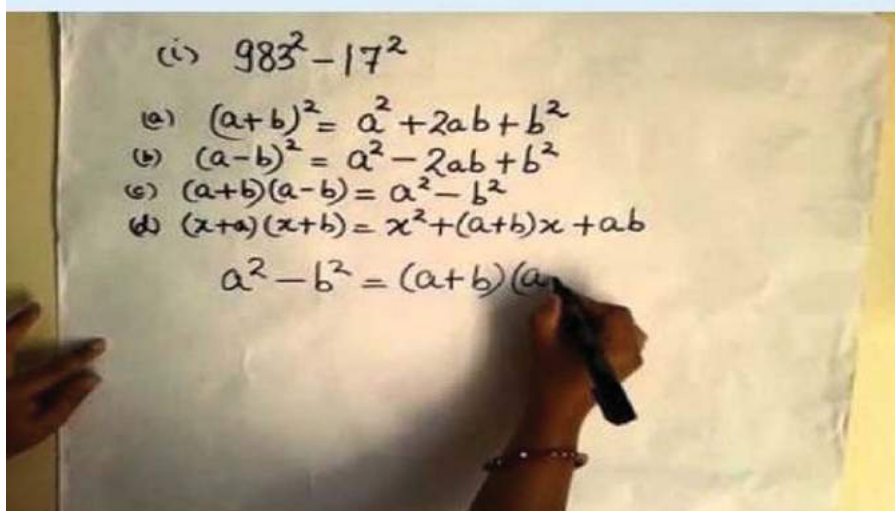 (i) 983² – 17²
(a) (a+b)² = a² + 2ab + b²
(b) (a-b)² = a² – 2ab + b²
(c) (a+b)(a-b) = a² – b²
(d) (x+a)(x+b) = x² + (a+b)x + ab
a² – b² = (a+b)(a